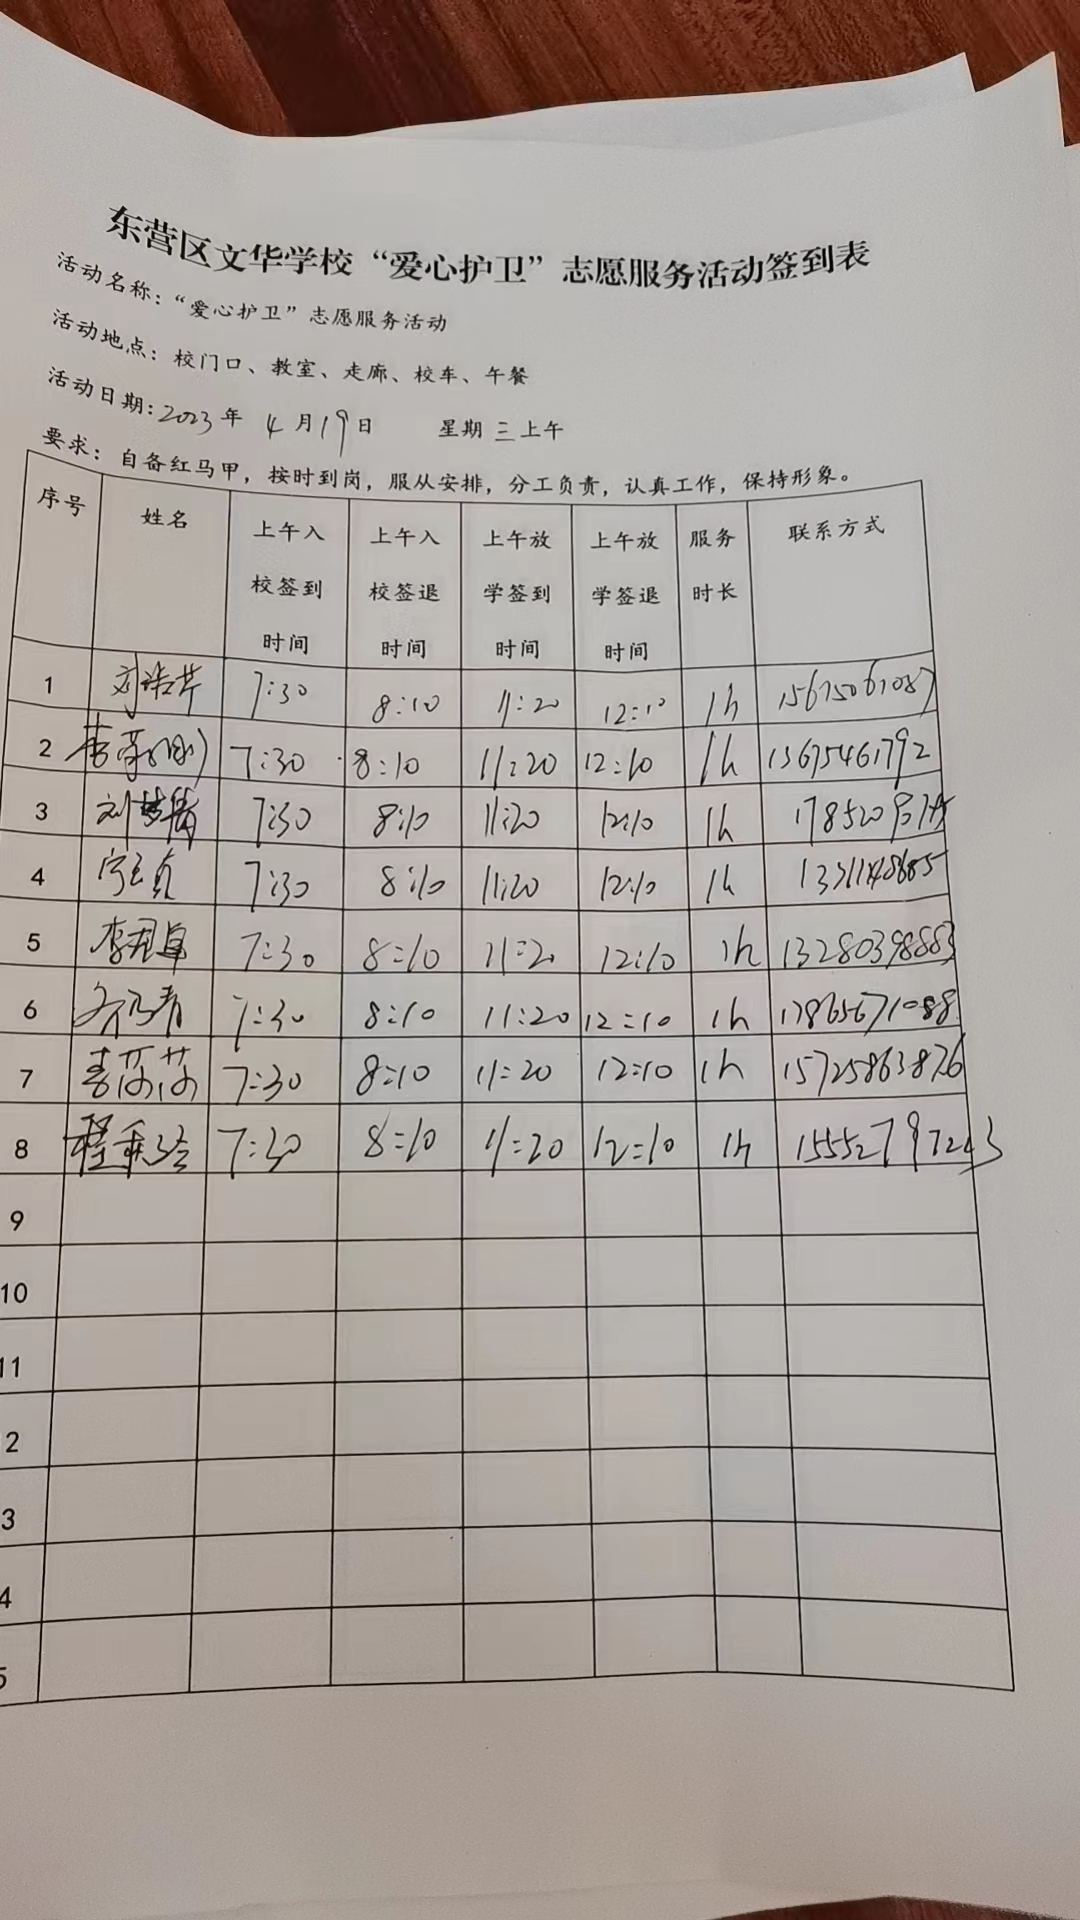 东营区文华学校“爱心护卫”志愿服务活动签到表
活动名称：“爱心护卫”志愿服务活动
活动地点：校门口、教室、走廊、校车、午餐
活动日期：2023年 4月19日 星期三上午
要求：自备红马甲，按时到岗，服从安排，分工负责，认真工作，保持形象。
序号 姓名 上午入校签到时间 上午入校签退时间 上午放学签到时间 上午放学签退时间 服务时长 联系方式
1 7:30 8:10 11:20 12:10 1h
2 7:30 8:10 11:20 12:10 1h 13675461792
3 7:30 8:10 11:20 12:10 1h
4 7:30 8:10 11:20 12:10 1h
5 7:30 8:10 11:20 12:10 1h 13280398883
6 7:30 8:10 11:20 12:10 1h 17865671088
7 7:30 8:10 11:20 12:10 1h 15725863876
8 7:30 8:10 11:20 12:10 1h
9
10
11
2
3
4
5